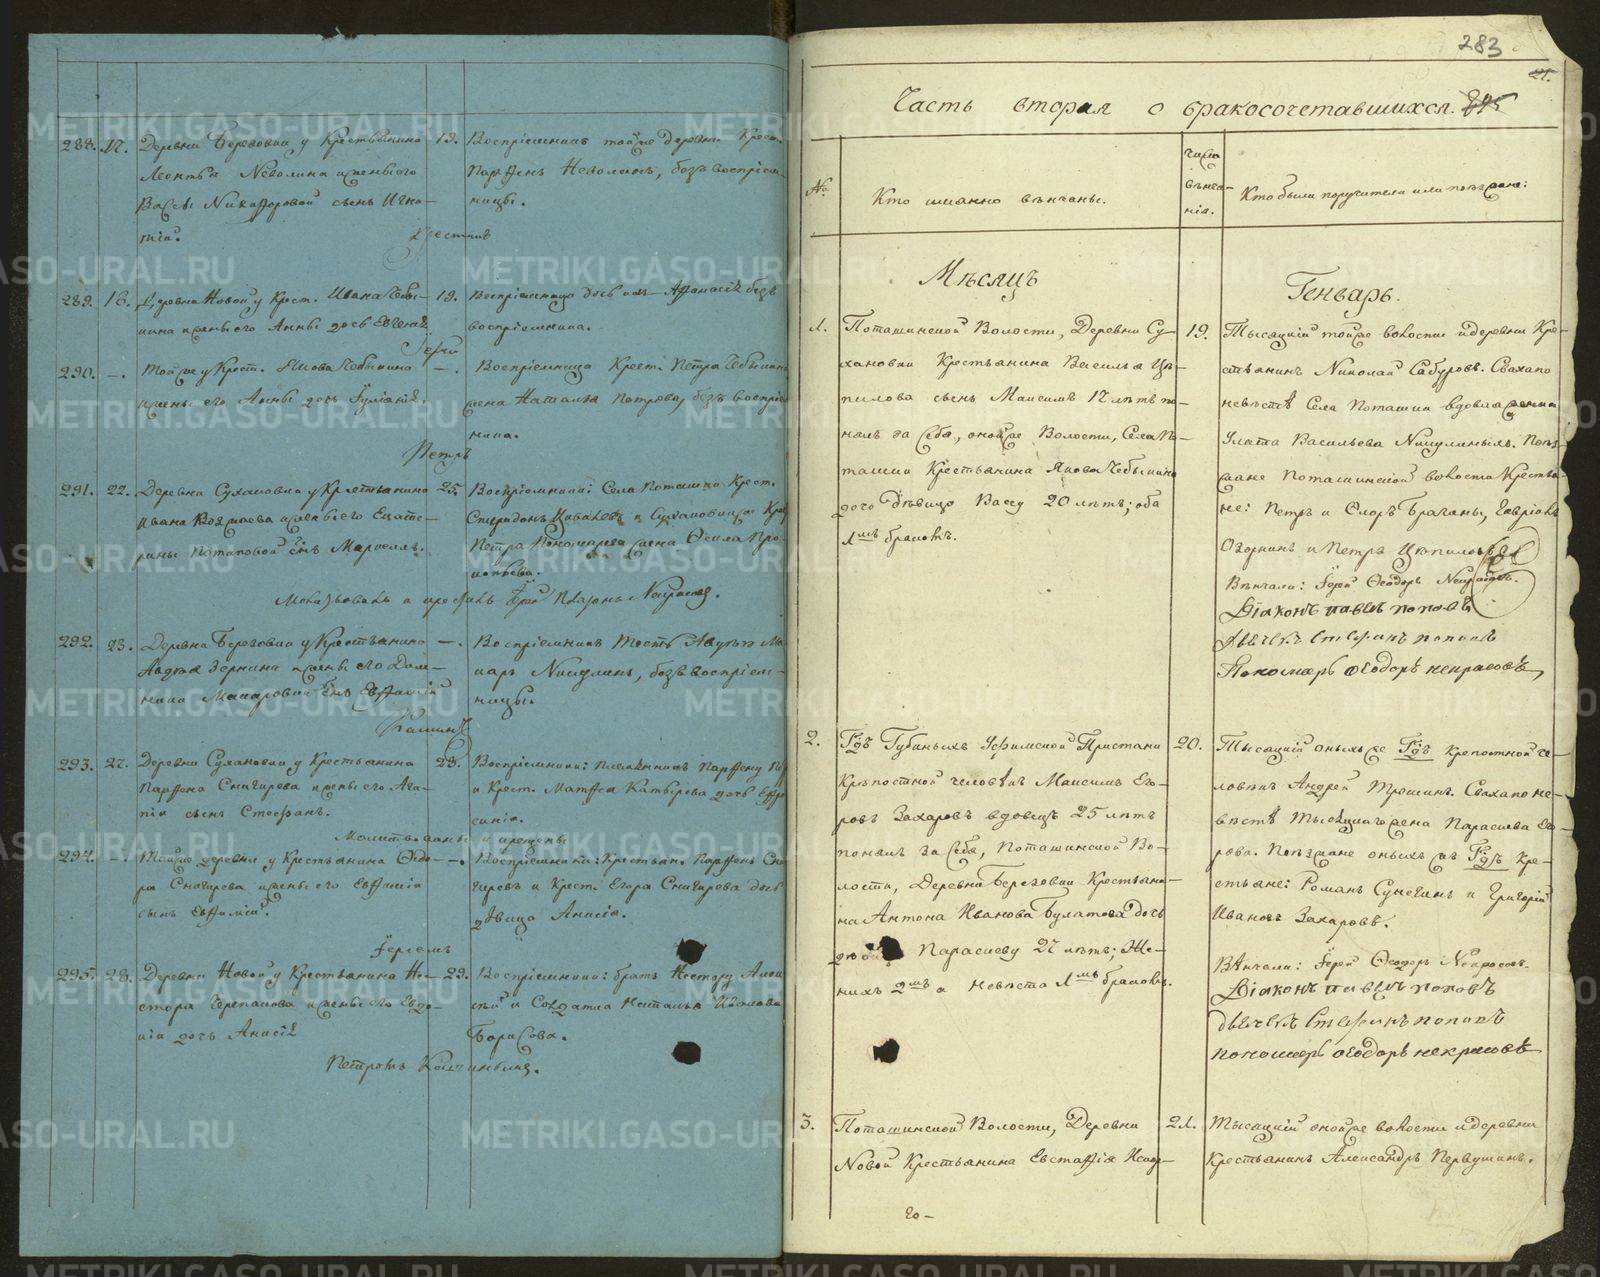 288. 17. Деревни Березовки у Крестьянина
Леонтья Неволина и жены его
Вассы Никифоровой сынъ Игна-
тій.
19. Воспріемникъ тойже деревни Крест.
Парфенъ Неволинъ, безъ воспріем-
ницы.
289. 18. Деревни Новой у Крест. Ивана Чебы-
кина и жены его Анны дочь Евгенія.
19. воспріемника.
290. —. Тойже у Крест. Якова Чебыкина
и жены его Анны дочь Іуліанія.
—. Воспріемница Крест. Петра Чебыкина
жена Наталья Петрова, безъ воспріем-
ника.
291. 22. Деревни Сухановки у Крестьянина
Ивана и жены его Екате-
рины Потаповой сынъ
25. Воспріемники: Села Поташки Крест.
Спиридонъ и Сухановки Крест.
Петра Пономарева жена Ѳекла Про-
копьева.
292. 23. Деревни Березовки у Крестьянина
Авдѣя Зернина и жены его Дом-
ники Макаровой сынъ Евфимій
—. Воспріемникъ
Никулинъ, безъ воспріем-
ницы.
293. 27. Деревни Сухановки у Крестьянина
Парфена Снигирева и жены его Ага-
піи сынъ Стефанъ.
29. Воспріемники:
и Крест. Матфея дочь
294. —. Тойже деревни у Крестьянина Ѳедо-
ра Снигирева и жены его Евфиміи
сынъ Евфимій.
—. Воспріемники: Крестьян. Парфенъ Сни-
гиревъ и Крест. Егора Снигирева дочь
дѣвица Анисія.
295. 28. Деревни Новой у Крестьянина Не-
стора Черепанова и жены его Евдо-
кіи дочь Анисія
29. Воспріемники: братъ Нестору Алек-
сѣй и Солдатка Наталья Иванова
Борисова.
283
21.
Часть вторая о бракосочетавшихся.
№
Кто именно вѣнчаны.
Число
вѣнча-
нія.
Кто были поручители или поѣзжане:
Мѣсяцъ
Генварь.
1. Поташинской Волости, Деревни Су-
хановки Крестьянина Василья Ця-
пилова сынъ Максимъ 17 лѣтъ по-
нялъ за себя, онойже Волости, Села По-
ташки Крестьянина Якова Чебыкина
дочь дѣвицу Вассу 20 лѣтъ; оба
1мъ бракомъ.
19. Тысяцкій тойже волости и деревни Кре-
стьянинъ Николай Сабуровъ. Сваха по
невѣстѣ Села Поташки вдова
Улита Васильева Никулиныхъ. Поѣз-
жане Поташинской волости Крестья-
не: Петръ и Флоръ Брагины, Гавріилъ
Озорнинъ и Петръ Цяпиловъ
Вѣнчали: Іерей Ѳеодоръ Некрасовъ.
Діаконъ Павелъ Поповъ
Дьячекъ Стефанъ Поповъ
Пономарь Ѳеодоръ Некрасовъ
2. Гдъ Губиныхъ Уфимской Пристани
Крѣпостной человѣкъ Максимъ Его-
ровъ Захаровъ вдовецъ 25 лѣтъ
понялъ за себя, Поташинской Во-
лости, Деревни Березовки Крестьяни-
на Антона Иванова Булатова дочь
Параскеву 27 лѣтъ; Же-
нихъ 2мъ а невѣста 1мъ бракомъ.
20. Тысяцкій оныхъже Гдъ крепостной че-
ловѣкъ Андрей Трошинъ. Сваха по не-
вѣстѣ Тысяцкаго жена Параскева Его-
рова. Поѣзжане оныхъ же Гдъ Кре-
стьяне: Романъ Сунегинъ и Григорій
Ивановъ Захаровъ.
Вѣнчали: Іерей Ѳеодоръ Некрасовъ.
Діаконъ Павелъ Поповъ
Дьячекъ Стефанъ Поповъ
Пономарь Ѳеодоръ Некрасовъ
3. Поташинской Волости, Деревни
Новой Крестьянина Евстафія
21. Тысяцкій онойже волости и деревни
Крестьянинъ Александръ Первушинъ.
го-
METRIKI.GASO-URAL.RU